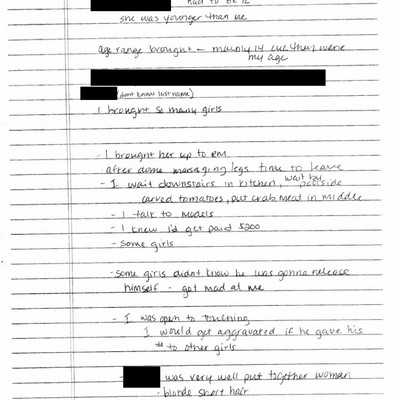 had to be 12
she was younger than me
age range brought — mainly 14 cuz they were
my age
(don't know last name)
I brought so many girls
- I brought her up to rm
after done massaging legs time to leave
- I wait downstairs in kitchen, wait by poolside
carved tomatoes, put crab meat in middle
- I talk to models
- I knew I'd get paid $200
- some girls
- some girls didn't know he was gonna release
himself - got mad at me
- I was open to touching
I would get aggravated if he gave his
# to other girls
- was very well put together woman
- blonde short hair